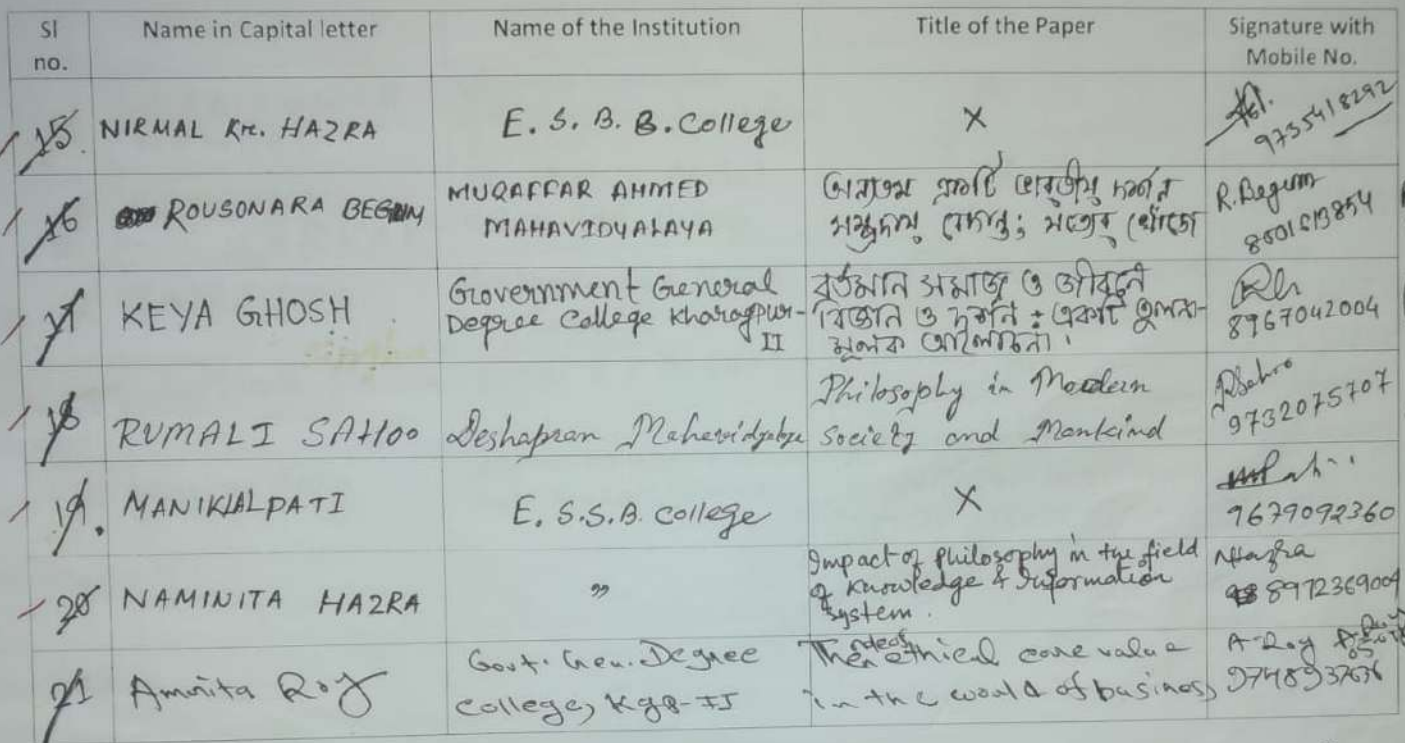 Sl no. Name in Capital letter Name of the Institution Title of the Paper Signature with Mobile No.
15. NIRMAL Kr. HAZRA E. S. B. B. College X 9735418292
16 ROUSONARA BEGUM MUQAFFAR AHMED MAHAVIDYALAYA R. Begum
17 KEYA GHOSH Government General Degree College Kharagpur-II বর্তমান সমাজ ও জীবনে বিজ্ঞান ও দর্শন : একটি তুলনা-মূলক আলোচনা। 8967042004
18 RUMALI SAHOO Deshapran Mahavidyalaya Philosophy in Modern Society and Mankind 9732075707
19. MANIKLAL PATI E. S.S.B. College X 9679092360
20 NAMINITA HAZRA " Impact of Philosophy in the field of Knowledge & Information system. NHazra 8972369009
21 Amrita Roy Govt. Gen. Degree College, Kgp-II The ethical core value in the world of business A. Roy